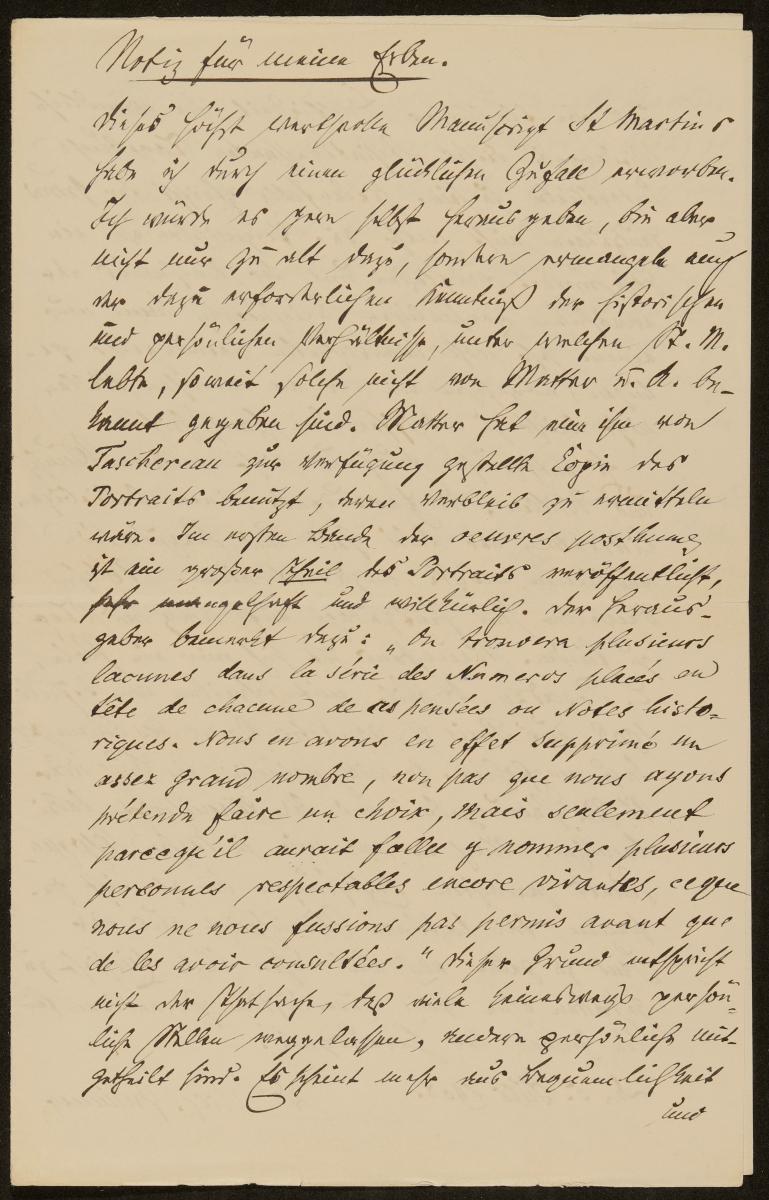 Notiz für meine Erben.
Dieses höchst werthvolle Manuscript St Martins
habe ich durch einen glücklichen Zufall erworben.
Ich würde es gern selbst herausgeben, bin aber
nicht nur zu alt dazu, sondern ermangele auch
der dazu erforderlichen Kenntniß der historischen
und persönlichen Verhältnisse, unter welchen St. M.
lebte, soweit solche nicht von Matter u. A. be-
kannt gegeben sind. Matter hat eine ihm von
Taschereau zur Verfügung gestellte Copie des
Portraits benutzt, deren Verbleib zu ermitteln
wäre. Im ersten Bande der oeuvres posthumes
ist ein großer Theil des Portraits veröffentlicht,
sehr mangelhaft und willkürlich. Der Heraus-
geber bemerkt dazu: „On trouvera plusieurs
lacunes dans la série des Numeros placés en
tête de chacune de ces pensées ou Notes histo-
riques. Nous en avons en effet supprimé un
assez grand nombre, non pas que nous ayons
prétendu faire un choix, mais seulement
parcequ'il aurait fallu y nommer plusieurs
personnes respectables encore vivantes, ce que
nous ne nous fussions pas permis avant que
de les avoir consultées." Dieser Grund entspricht
nicht der Thatsache, daß viele keineswegs persön-
liche Stellen weggelassen, andere persönliche mit-
getheilt sind. Es scheint mehr aus Bequemlichkeit
und